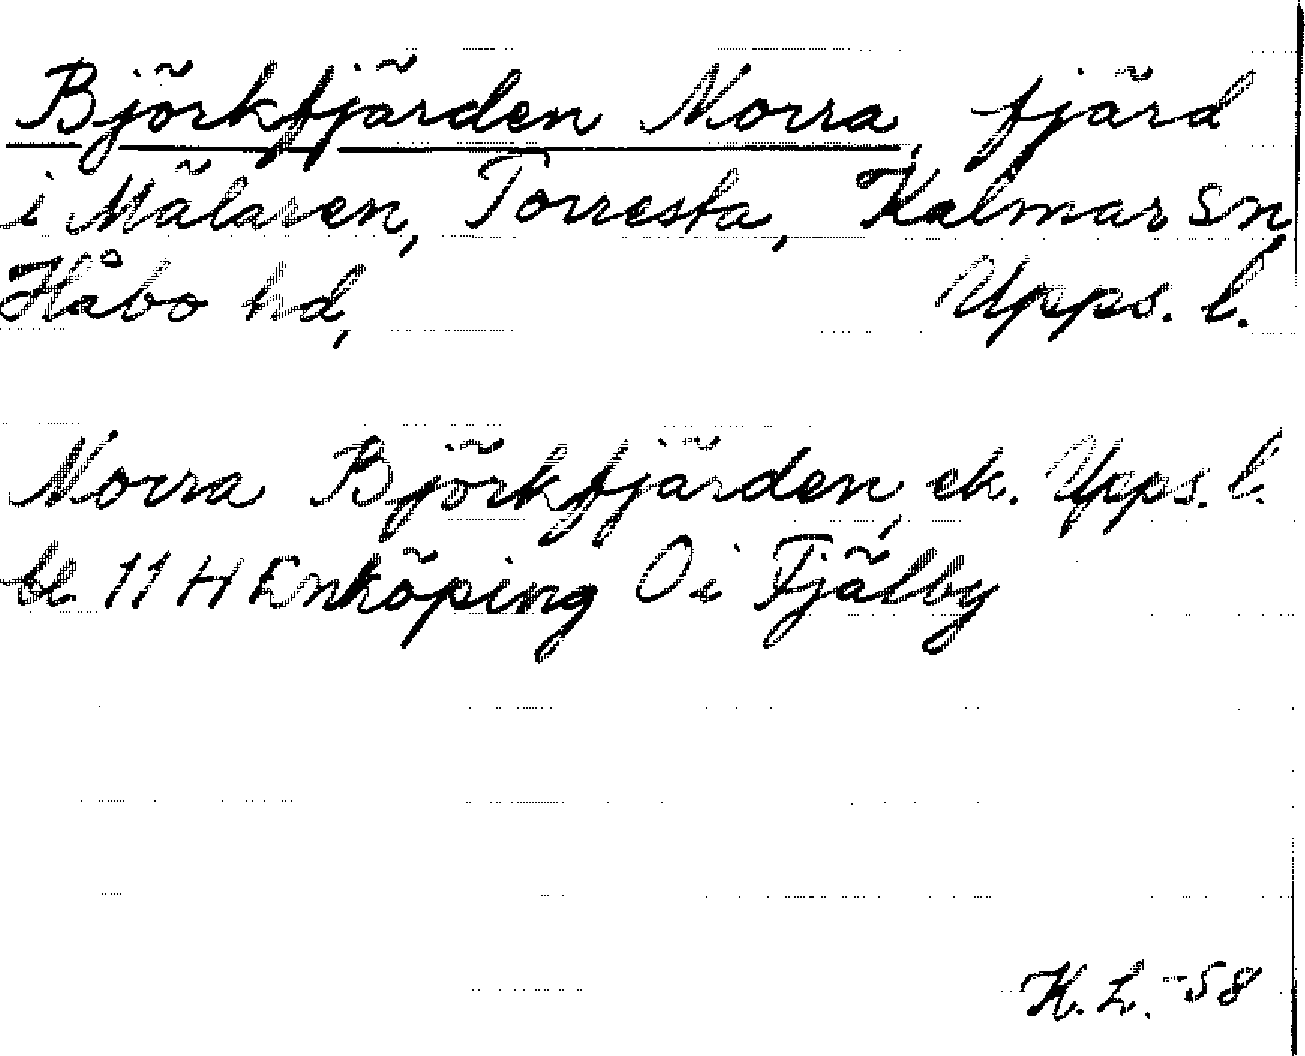 Björkfjärden Norra, fjärd
i Mälaren, Torresta, Kalmar sn,
Håbo hd, Upps. l.
Norra Björkfjärden, ek. Upps. l.
bl. 11 H Enköping O i Fjälby
K. L. -58